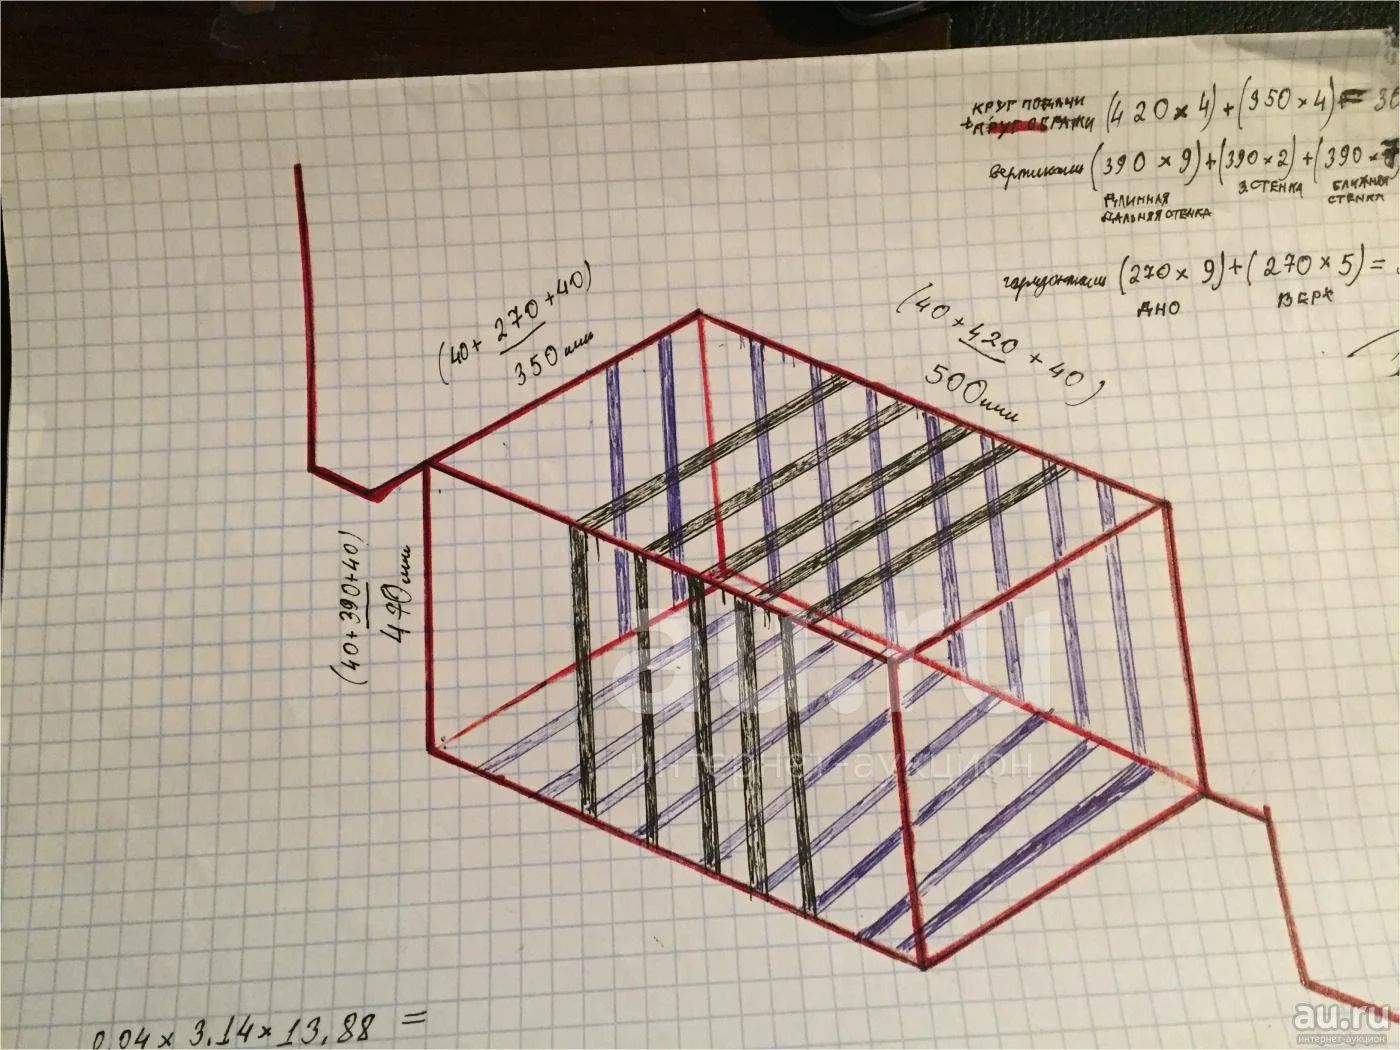 КРУГ ПОДАЧИ
+КРУГ ОБРАТКИ (420 x 4) + (350 x 4) = 30
вертикали (390 x 9) + (390 x 2) + (390 x
ДЛИННАЯ ДАЛЬНЯЯ СТЕНКА
3 СТЕНКА
БЛИЖНЯЯ СТЕНКА
горизонтали (270 x 9) + (270 x 5) =
ДНО
ВЕРХ
(40 + 270 + 40)
350 мм
(40 + 420 + 40)
500 мм
(40+390+40)
470 мм
au.ru
интернет-аукцион
0,04 x 3,14 x 13,88 =
au.ru
интернет-аукцион